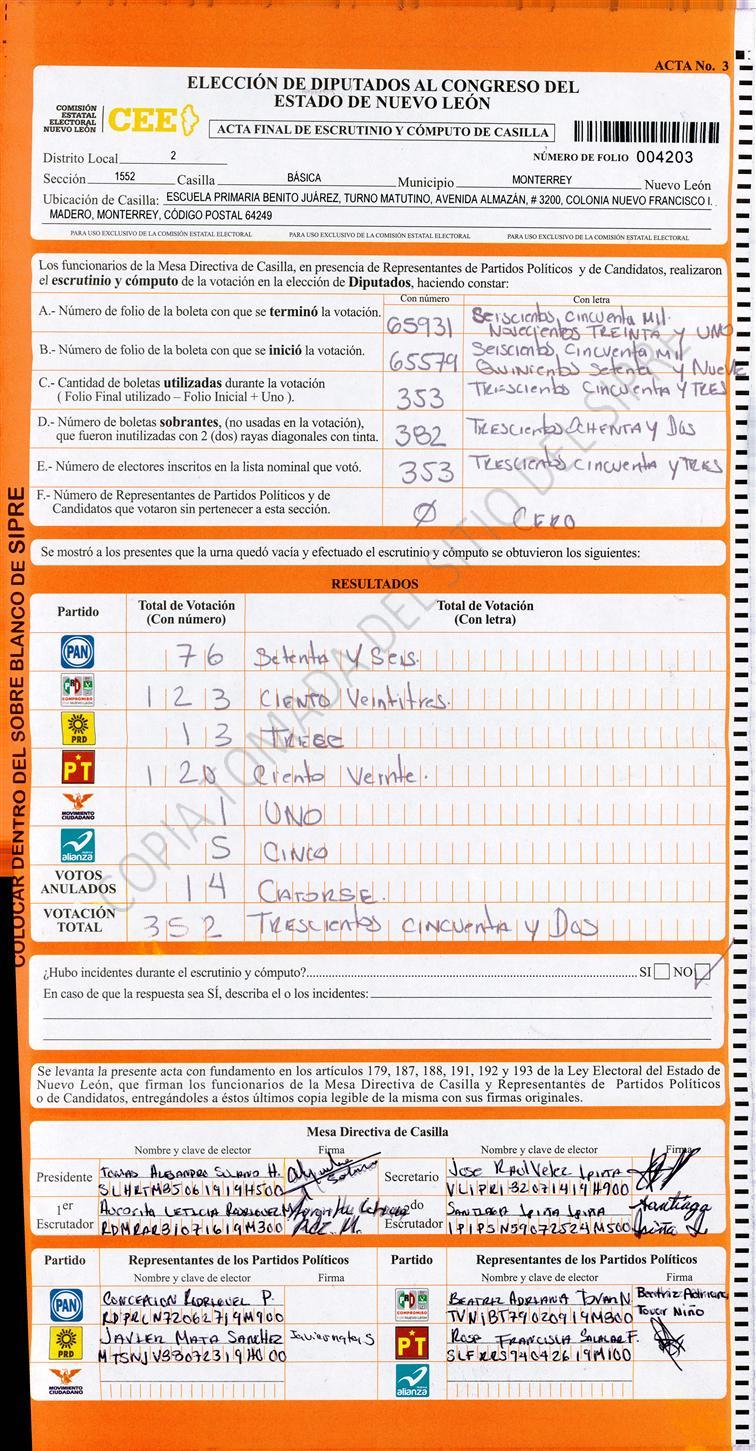 ACTA No. 3
ELECCIÓN DE DIPUTADOS AL CONGRESO DEL
ESTADO DE NUEVO LEÓN
COMISIÓN
ESTATAL
ELECTORAL
NUEVO LEÓN
CEE
ACTA FINAL DE ESCRUTINIO Y CÓMPUTO DE CASILLA
Distrito Local 2
NÚMERO DE FOLIO 004203
Sección 1552 Casilla BÁSICA Municipio MONTERREY Nuevo León
Ubicación de Casilla: ESCUELA PRIMARIA BENITO JUÁREZ, TURNO MATUTINO, AVENIDA ALMAZÁN, # 3200, COLONIA NUEVO FRANCISCO I.
MADERO, MONTERREY, CÓDIGO POSTAL 64249
PARA USO EXCLUSIVO DE LA COMISIÓN ESTATAL ELECTORAL PARA USO EXCLUSIVO DE LA COMISIÓN ESTATAL ELECTORAL PARA USO EXCLUSIVO DE LA COMISIÓN ESTATAL ELECTORAL
Los funcionarios de la Mesa Directiva de Casilla, en presencia de Representantes de Partidos Políticos y de Candidatos, realizaron
el escrutinio y cómputo de la votación en la elección de Diputados, haciendo constar:
Con número Con letra
A.- Número de folio de la boleta con que se terminó la votación. 65931 Seiscientos, Cincuenta Mil.
Novecientos TREINTA y UNO
B.- Número de folio de la boleta con que se inició la votación. 65579 Seiscientos, Cincuenta Mil
Quinientos Setenta y Nueve
C.- Cantidad de boletas utilizadas durante la votación
( Folio Final utilizado – Folio Inicial + Uno ). 353 TRESCIENTOS CINCUENTA Y TRES
D.- Número de boletas sobrantes, (no usadas en la votación),
que fueron inutilizadas con 2 (dos) rayas diagonales con tinta. 382 TRESCIENTOS OCHENTA Y DOS
E.- Número de electores inscritos en la lista nominal que votó. 353 TRESCIENTOS CINCUENTA y TRES
F.- Número de Representantes de Partidos Políticos y de
Candidatos que votaron sin pertenecer a esta sección. Ø CERO
Se mostró a los presentes que la urna quedó vacía y efectuado el escrutinio y cómputo se obtuvieron los siguientes:
RESULTADOS
Partido Total de Votación
(Con número) Total de Votación
(Con letra)
PAN 76 Setenta y Seis.
PRI COMPROMISO 123 CIENTO Veintitres.
PRD 13 TRECE
PT 120 Ciento Veinte.
MOVIMIENTO
CIUDADANO 1 UNO
alianza 5 CINCO
VOTOS
ANULADOS 14 CATORSE.
VOTACIÓN
TOTAL 352 TRESCIENTOS CINCUENTA y DOS
¿Hubo incidentes durante el escrutinio y cómputo? SI NO
En caso de que la respuesta sea SÍ, describa el o los incidentes:
Se levanta la presente acta con fundamento en los artículos 179, 187, 188, 191, 192 y 193 de la Ley Electoral del Estado de
Nuevo León, que firman los funcionarios de la Mesa Directiva de Casilla y Representantes de Partidos Políticos
o de Candidatos, entregándoles a éstos últimos copia legible de la misma con sus firmas originales.
Mesa Directiva de Casilla
Nombre y clave de elector Firma Nombre y clave de elector Firma
Presidente TOMAS ALEJANDRO SOLANO H.
Secretario JOSE RAUL VELEZ
1er
Escrutador LETICIA RODRIGUEZ M
2do
Escrutador SANTIAGA Santiaga
Partido Representantes de los Partidos Políticos Partido Representantes de los Partidos Políticos
Nombre y clave de elector Firma Nombre y clave de elector Firma
PAN CONCEPCION RODRIGUEZ P.
BEATRIZ ADRIANA TOVAR N Beatriz Adriana
Tovar Niño
PRD JAVIER MATA SANCHEZ
PT ROSA FRANCISCA SALAZAR F.
MOVIMIENTO
CIUDADANO
alianza
COLOCAR DENTRO DEL SOBRE BLANCO DE SIPRE
COPIA TOMADA DEL SITIO DEL SIPRE